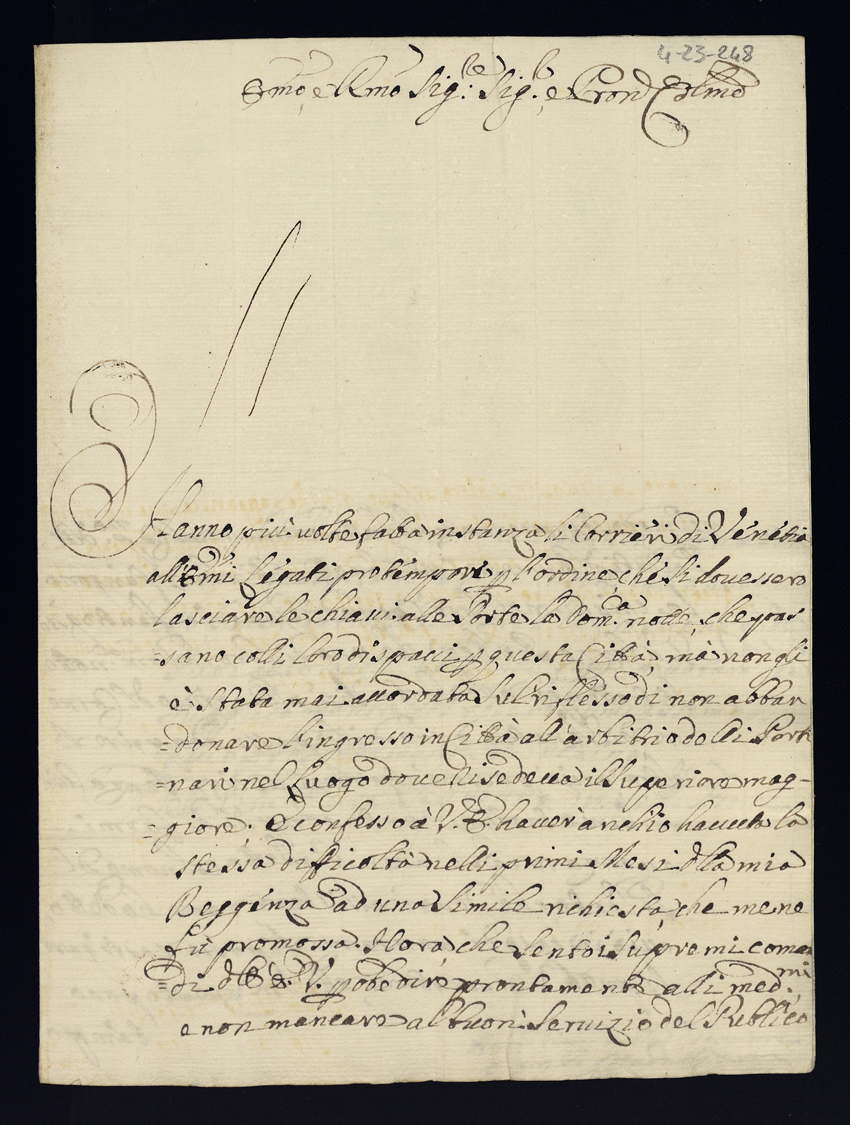 4-23-248
Em̃o, e Rm̃o Sig.re Sig.r e Pron Col̃mo
Hanno più volte fatta instanza li Corrieri di Venetia
all'Em̃i Legati pro tempore p l'ordine, che si dovessero
lasciare le chiavi alle Porte la Dom.ca notte, che pas
=sano colli loro dispacci p questa Città, mà non gli
è stata mai accordata sul riflesso di non abban
=donare l'ingresso in Città all'arbitrio delli Porti
=nari nel luogo dove vi sedeva il Superiore mag-
=giore. E confesso à V. E. haver anch'io havuta la
stessa difficoltà nelli primi Mesi della mia
Reggenza ad una simile richiesta, che me ne
fù promossa. Hora che sento i supremi coman
=di dell' E. V. p obedire prontamente alli med.mi
e non mancare al buon servizio del Publico